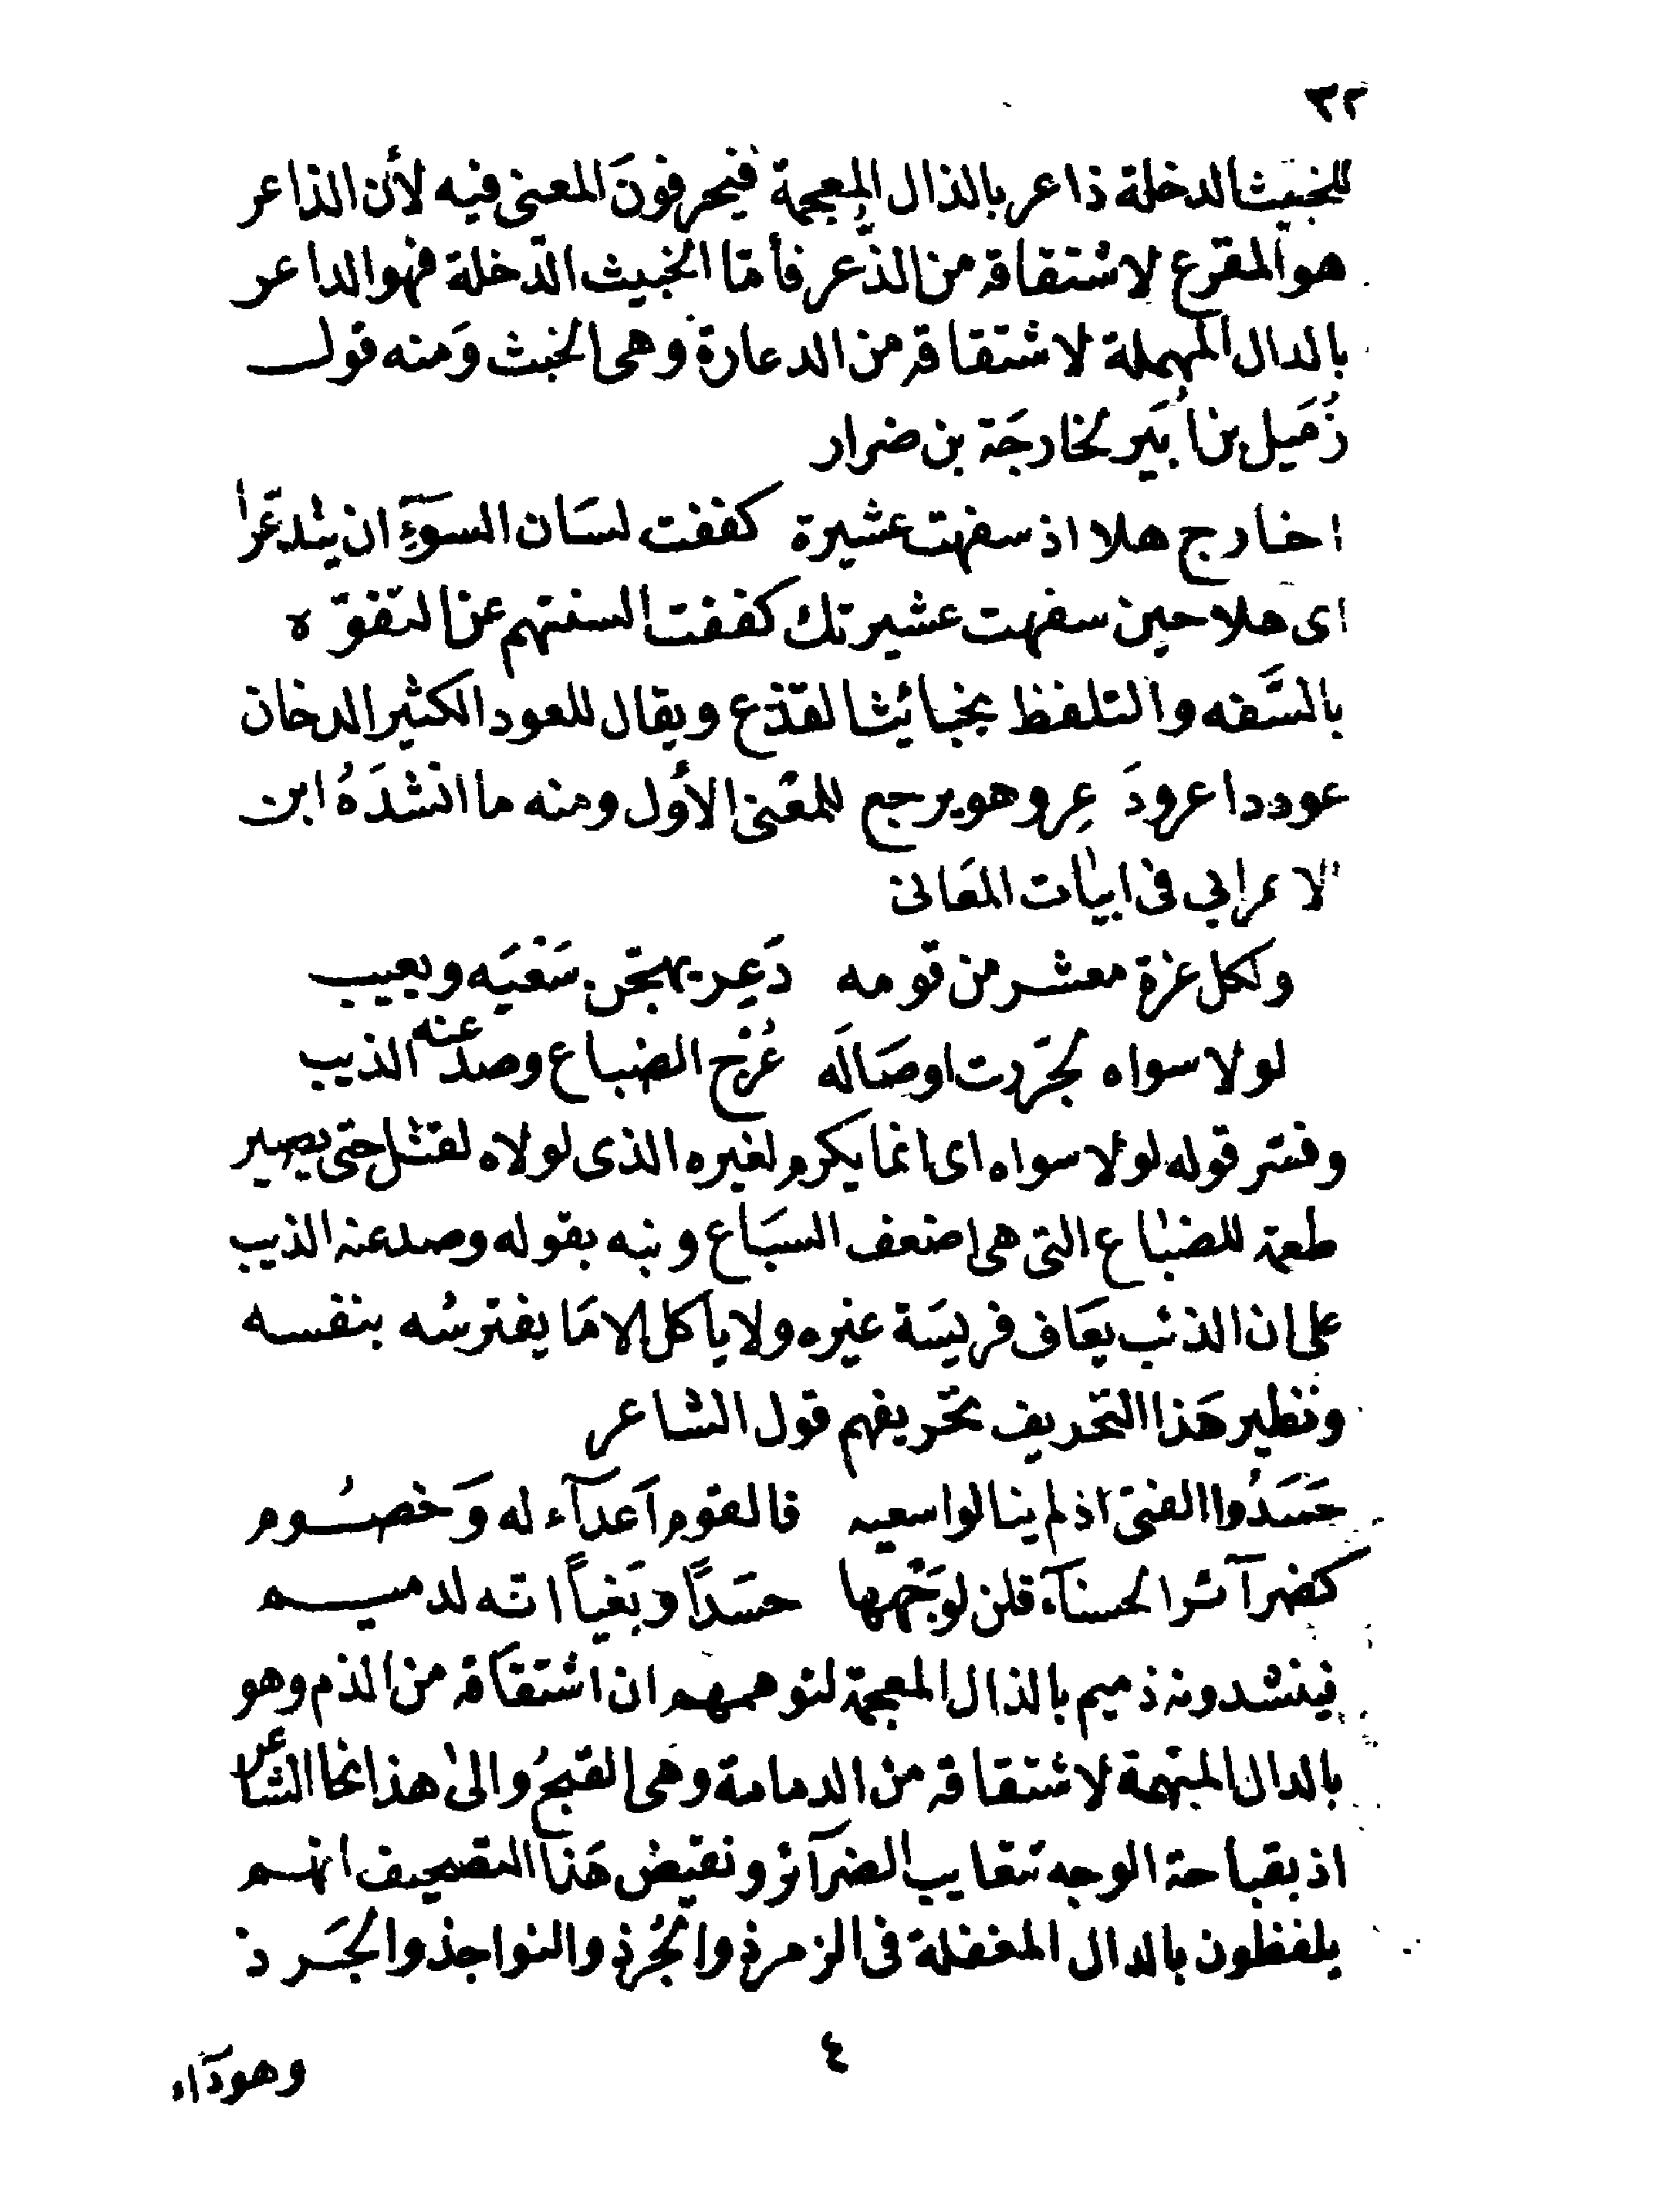 ٣٢
للخبيث الدخلة ذاعر بالذال المعجمة فيحرفونَ المعنى فيه لأن الذاعر
هو المفزع لاشتقاقه من الذُّعر فأمّا الخبيث الدّخلة فهو الداعر
بالدال المهملة لاشتقاقه من الدعارة وهى الخبث وَمنه قول
زُمَيل بن أُبَير لخارجَة بن ضرار
اخارج هلا اذ سفهت عشيرة كففت لسَان السوَءِ ان يتدعّرا
اى هلا حين سفهت عشيرتك كففت السنتهم عن التفوّه
بالسَّفه والتلفظ بخبائيث القذع ويقال للعود الكثير الدخان
عود داعر ودَعِر وهو يرجع للمعْنى الأول ومنه ما انشدَهُ ابن
الاعرابي فى ابيات المعَانى
ولكل عزة معشر من قومه دَعِر يهجّن سَعْيَه ويعيب
لولا سواه لجَرّرت اوصَالَه عُرْج الضباع وصد عنه الذيب
وفسّر قوله لولا سواه اى انما يكرم لغيره الذى لولاه لقتل حتى يصير
طعمة للضباع التى هى اضعف السبَاع ونبه بقوله وصد عنه الذيب
على ان الذئب يعَاف فريسَة غيره ولا يأكل الا مَا يفترسُه بنفسه
ونظير هَذا التحريف تحريفهم قول الشاعر
حَسَدُوا الفتى اذ لم ينالوا سعيه فالقوم اَعدآء له وَخصُوم
كضرآئر الحسنآء قلن لوَجْهها حسَدًا وبَغياً انه لدميم
فينشدونه ذميم بالذال المعجمة لتوهمهم ان اشتقاقه من الذم وهو
بالدال المبهمة لاشتقاقه من الدمامة وهى القبحُ والىٰ هذا نحا الشاعر
اذ بقباحة الوجه تتعايب الضرآئر ونقيض هَذا التصحيف انهم
يلفظون بالدال المغفلة فى الزمرذ والجُرذ والنواجذ والجَرذ
٤
وهودآء